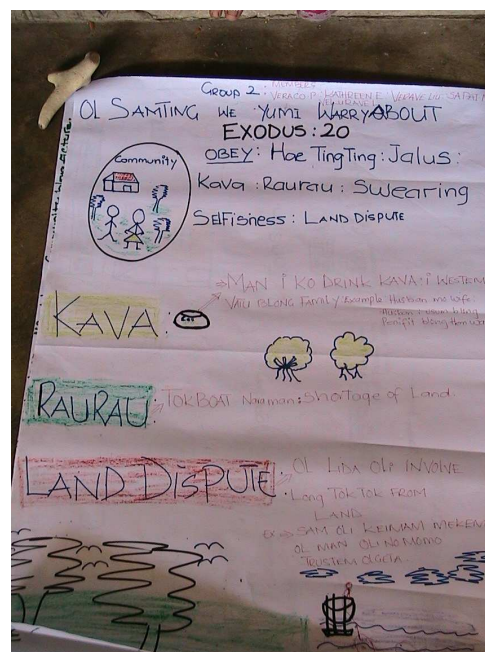 GROUP 2: MEMBERS
OL SAMTING WE YUMI WARRY ABOUT
EXODUS: 20
Community
OBEY: Hae TingTing: Jalus:
Kava: Raurau: Swearing
SELFISNESS: LAND DISPUTE
MAN i KO DRINK KAVA: i WESTEM
KAVA:
VATU BLONG Family Example Husban mo wife
RAURAU:
TOKBOAT Naraman: Shortage of Land.
LAND DISPUTE:
OL LIDA OLI INVOLVE
Long TOKTOK FROM
LAND
SAM OLI KEIMAM MEKEM
OL MAN OLI NOMOMO
TRUSTEM OLGETA.